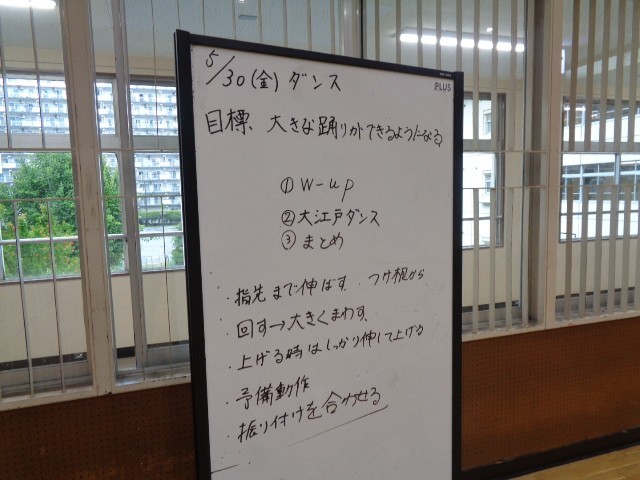 5/30(金) ダンス
PLUS
目標、大きな踊りができるようになる
①W-up
②大江戸ダンス
③まとめ
・指先まで伸ばす ・つけ根から
・回す→大きくまわす、
・上げる時はしっかり伸して上げる
・予備動作
・振り付けを合わせる